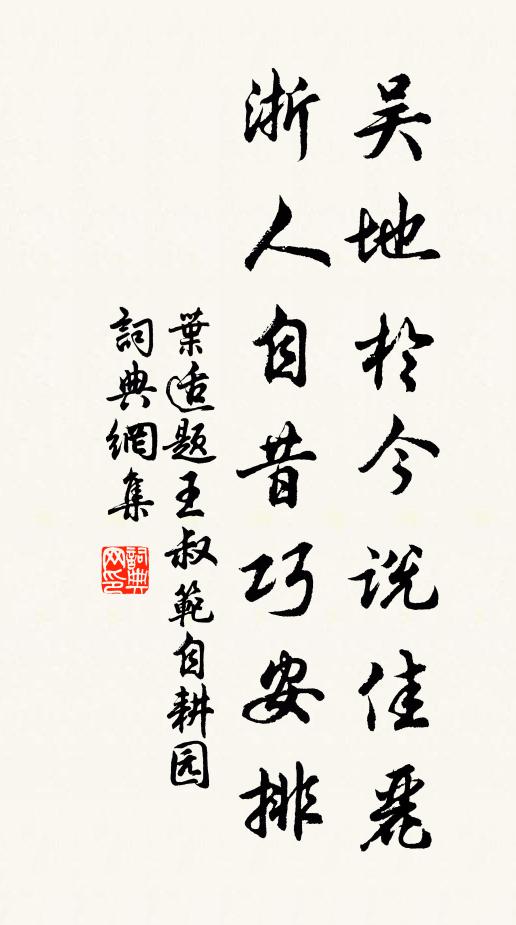 吴地於今説佳麗
浙人自昔巧安排
葉适題王叔範自耕园
詞典網集
詞典网印